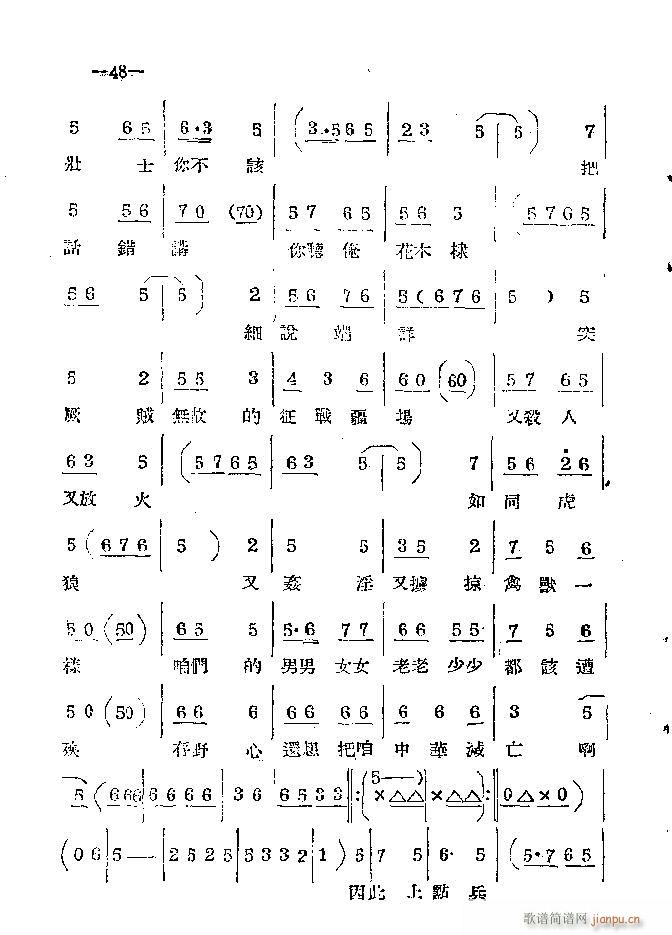 —48—
5 65 6·3 5 (3·565 23 5 5) 7
壯士你不該 把
5 56 70 (70) 57 65 56 3 (5765
話錯講 你聽俺花木棣
56 5 5) 2 56 76 5(676 5 ) 5
細說端詳 突
5 2 55 3 4 3 6 60 (60) 57 65
厥賊無故的征戰疆場 又殺人
63 5 (5765 63 5 5) 7 56 26
又放火 如同虎
5 (676 5 ) 2 5 5 35 2 7 5 6
狼 又姦淫又擄掠禽獸一
50 (50) 65 5 5·6 77 66 55 7 5 6
樣 咱們的男男女女老老少少都該遭
50 (50) 66 6 66 66 6 6 6 3 5
殃 存野心還想把咱中華滅亡 啊
5 (666 6666 36 6533 :(5— ×△△ ×△△ : 0△×0 )
(06 5— 2525 5332 1 ) 6 7 5 6· 5 (5·765
因此上點兵
歌谱简谱网 jianpu.cn